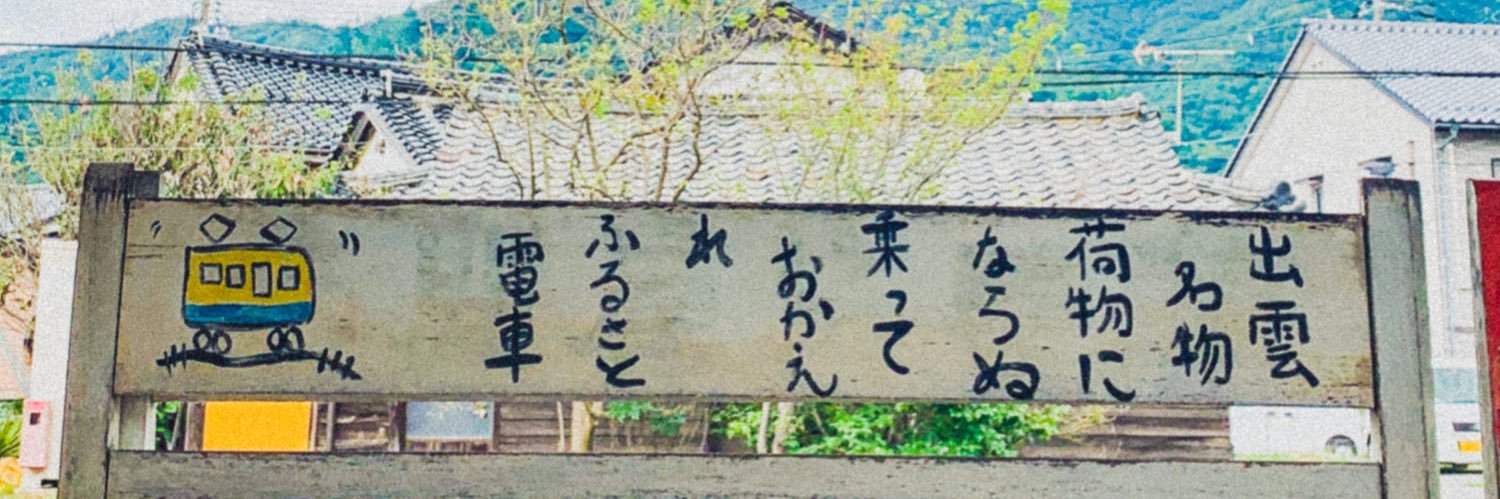 出雲
名物
荷物に
ならぬ
乗って
おかえ
れ
ふるさと
電車